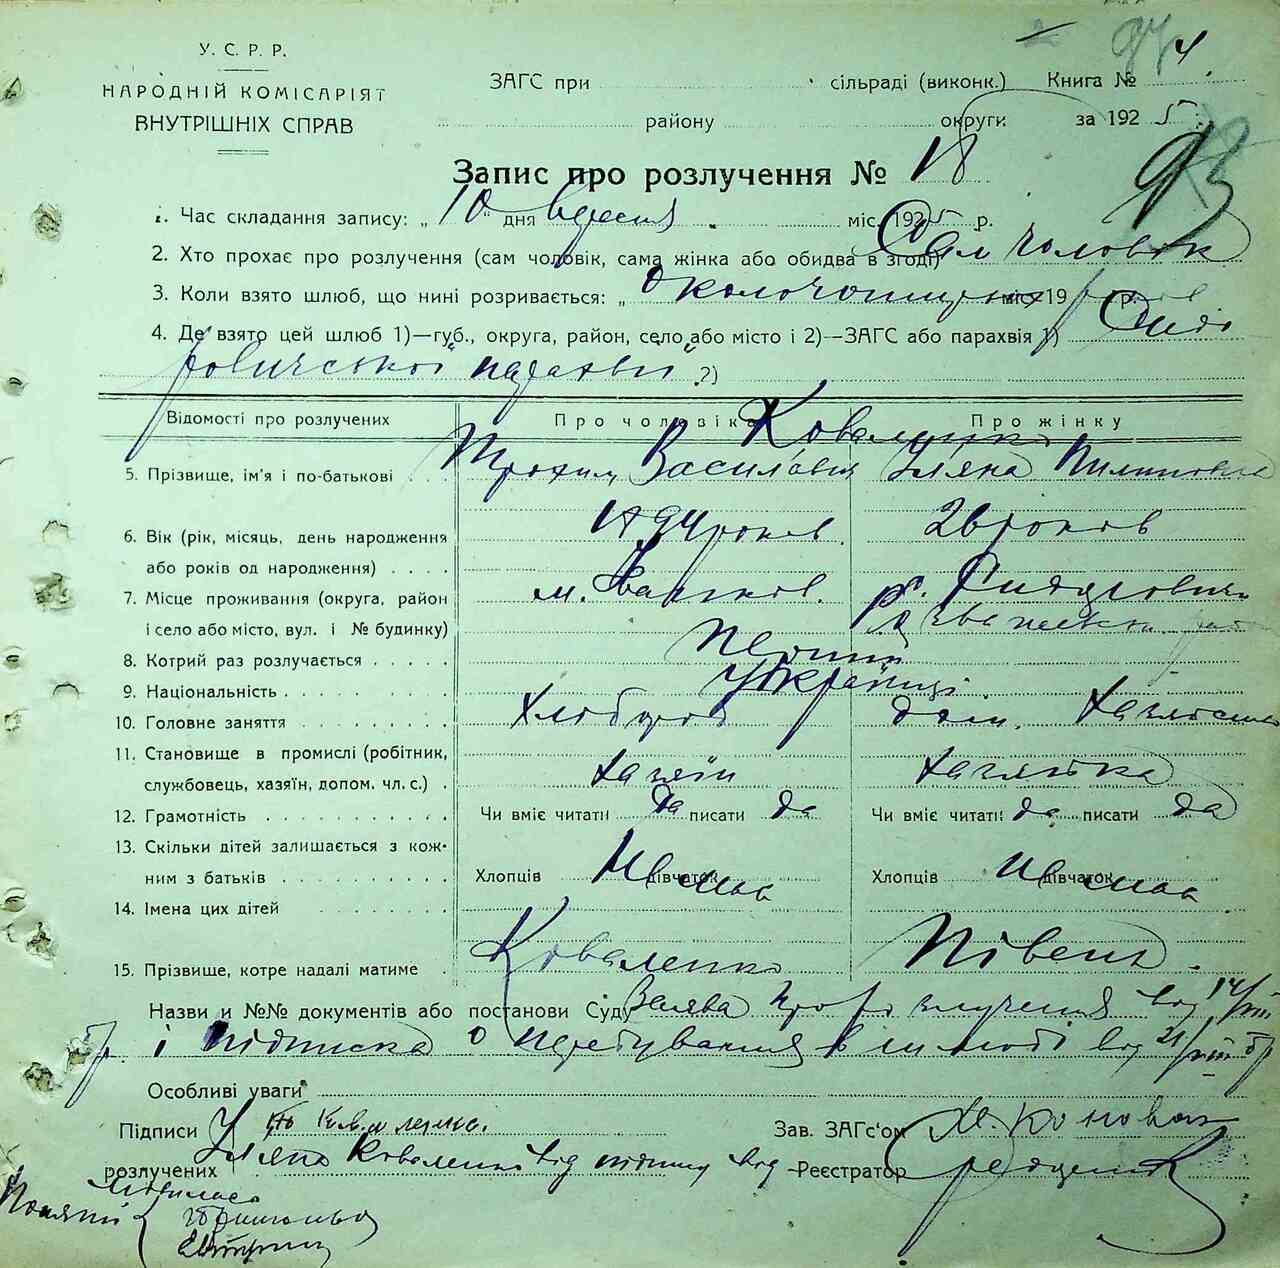 У. С. Р. Р.
НАРОДНІЙ КОМІСАРІЯТ
ВНУТРІШНІХ СПРАВ
ЗАГС при сільраді (виконк.) Книга № 4.
району округи за 1925
93
Запис про розлучення № 18
1. Час складання запису: „10" дня вересня міс. 1925 р.
2. Хто прохає про розлучення (сам чоловік, сама жінка або обидва в згоді) Сам чоловік
3. Коли взято шлюб, що нині розривається: „ міс. 19 р.
4. Де взято цей шлюб 1)—губ., округа, район, село або місто і 2)—ЗАГС або парахвія 1) Сидо
ровичської парахвії 2)
Відомості про розлучених Про чоловіка Про жінку
Коваленко
5. Прізвище, ім'я і по-батькові Трохим Васильович Уляна Пилиповна
6. Вік (рік, місяць, день народження років 26 років
або років од народження)
7. Місце проживання (округа, район м. Іванков. с. Сидоровичі
і село або місто, вул. і № будинку)
8. Котрий раз розлучається Перший
9. Національність Українці
10. Головне заняття Хлібороб дом. хазяйство
11. Становище в промислі (робітник,
службовець, хазяїн, допом. чл. с.) хазяїн хазяйка
12. Грамотність Чи вміє читати да писати да Чи вміє читати да писати да
13. Скільки дітей залишається з кож-
ним з батьків Хлопців дівчаток Немає Хлопців дівчаток Немає
14. Імена цих дітей
15. Прізвище, котре надалі матиме Коваленко Півень.
Назви и №№ документів або постанови Суду Заява про розлучення від 14/VIII
б/р. і підписка о перебуванні в шлюбі від 21/VIII б/р
Особливі уваги
Підписи Коваленко. Зав. ЗАГс'ом
розлучених Уляна Коваленко від підпису від Реєстратор